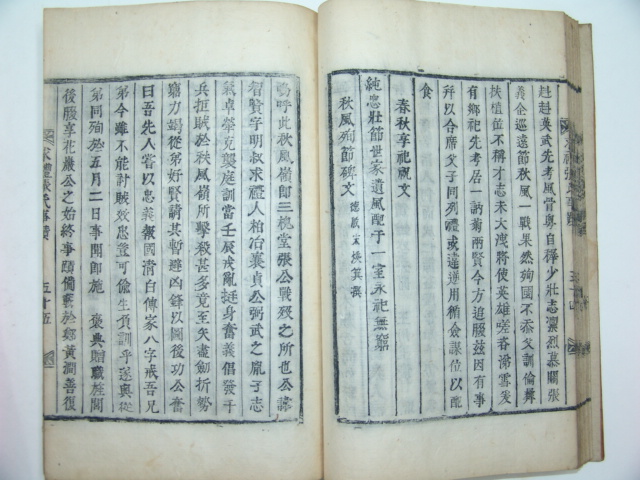 赳赳英武先考風骨專自擇少壯志濃烈慕關張
義企巡遠節秋風一戰果然殉國不忝父訓倫彜
扶植並不稱才志未大洩將使英雄嗟咨滑雪爰
有鄉祀先考居一訥菊兩賢今方追腏玆因有事
拜以合席父子同列禮或違逆用循僉謀位以酏
食
春秋享祀祝文
純忠壯節世家遺風醍于一室永祀無窮
秋風殉節碑文 撰
嗚呼此秋風嶺卽三槐堂張公戰歿之所也公諱
智賢字明叔求禮人柏冶襄貞公弼武之庶子志
氣卓犖克襲庭訓當壬辰戎亂挺身奮義倡發子
兵拒賊於秋風嶺所擊殺甚多竟至矢盡劍折勢
窮力竭從弟好賢請其暫避凶鋒以圖後功公奮
曰吾先人嘗以忠義報國淸白傳家八字戒吾兄
弟今雖不能討賊效忠豈可偸生負訓乎遂與從
弟同殉於五月二日事聞卽施 褒典贈職旌閭
後腏享花巖公之始終事蹟備載於鄭黃澗善復
求禮張氏事蹟 五十五